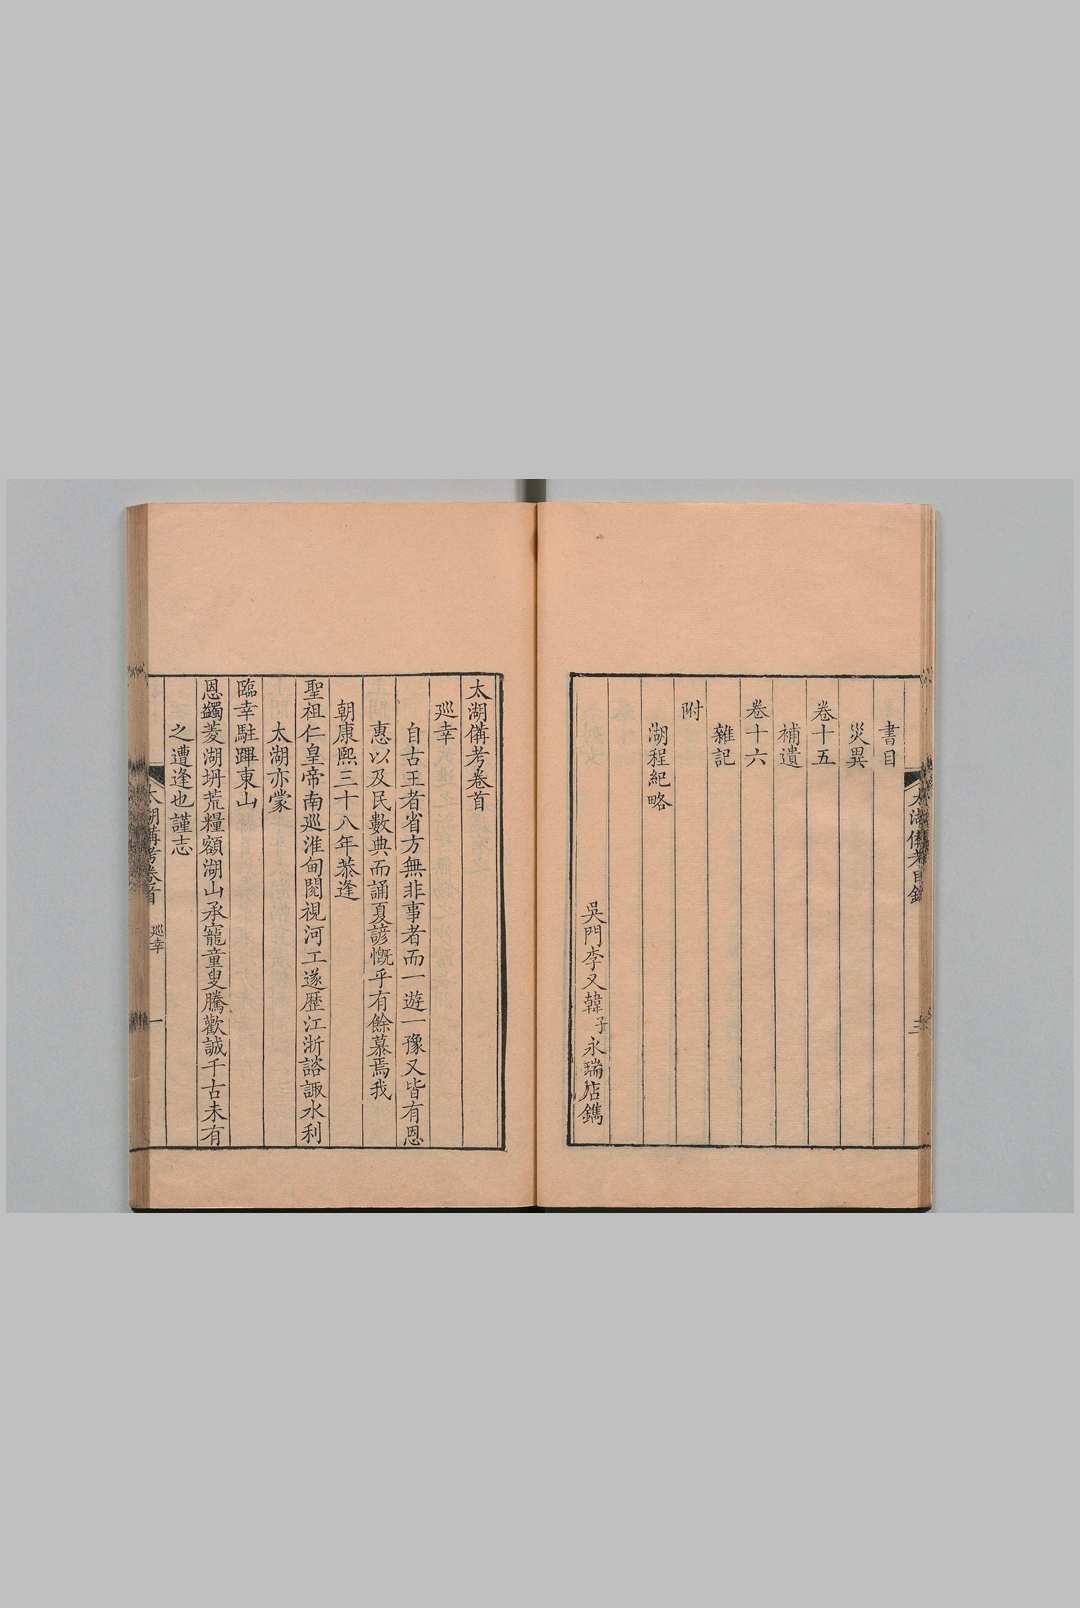 書目
災異
卷十五
補遺
卷十六
雜記
附
湖程紀略
吳門李又韓子永瑞店鐫
太湖備考目錄
三
太湖備考卷首
巡幸
自古王者省方無非事者而一遊一豫又皆有恩
惠以及民數典而誦夏諺慨乎有餘慕焉我
朝康熙三十八年恭逢
聖祖仁皇帝南巡淮甸閱視河工遂歷江浙諮諏水利
太湖亦蒙
臨幸駐蹕東山
恩蠲菱湖坍荒糧額湖山承寵童叟騰歡誠千古未有
之遭逢也謹志
太湖備考卷首
巡幸
一